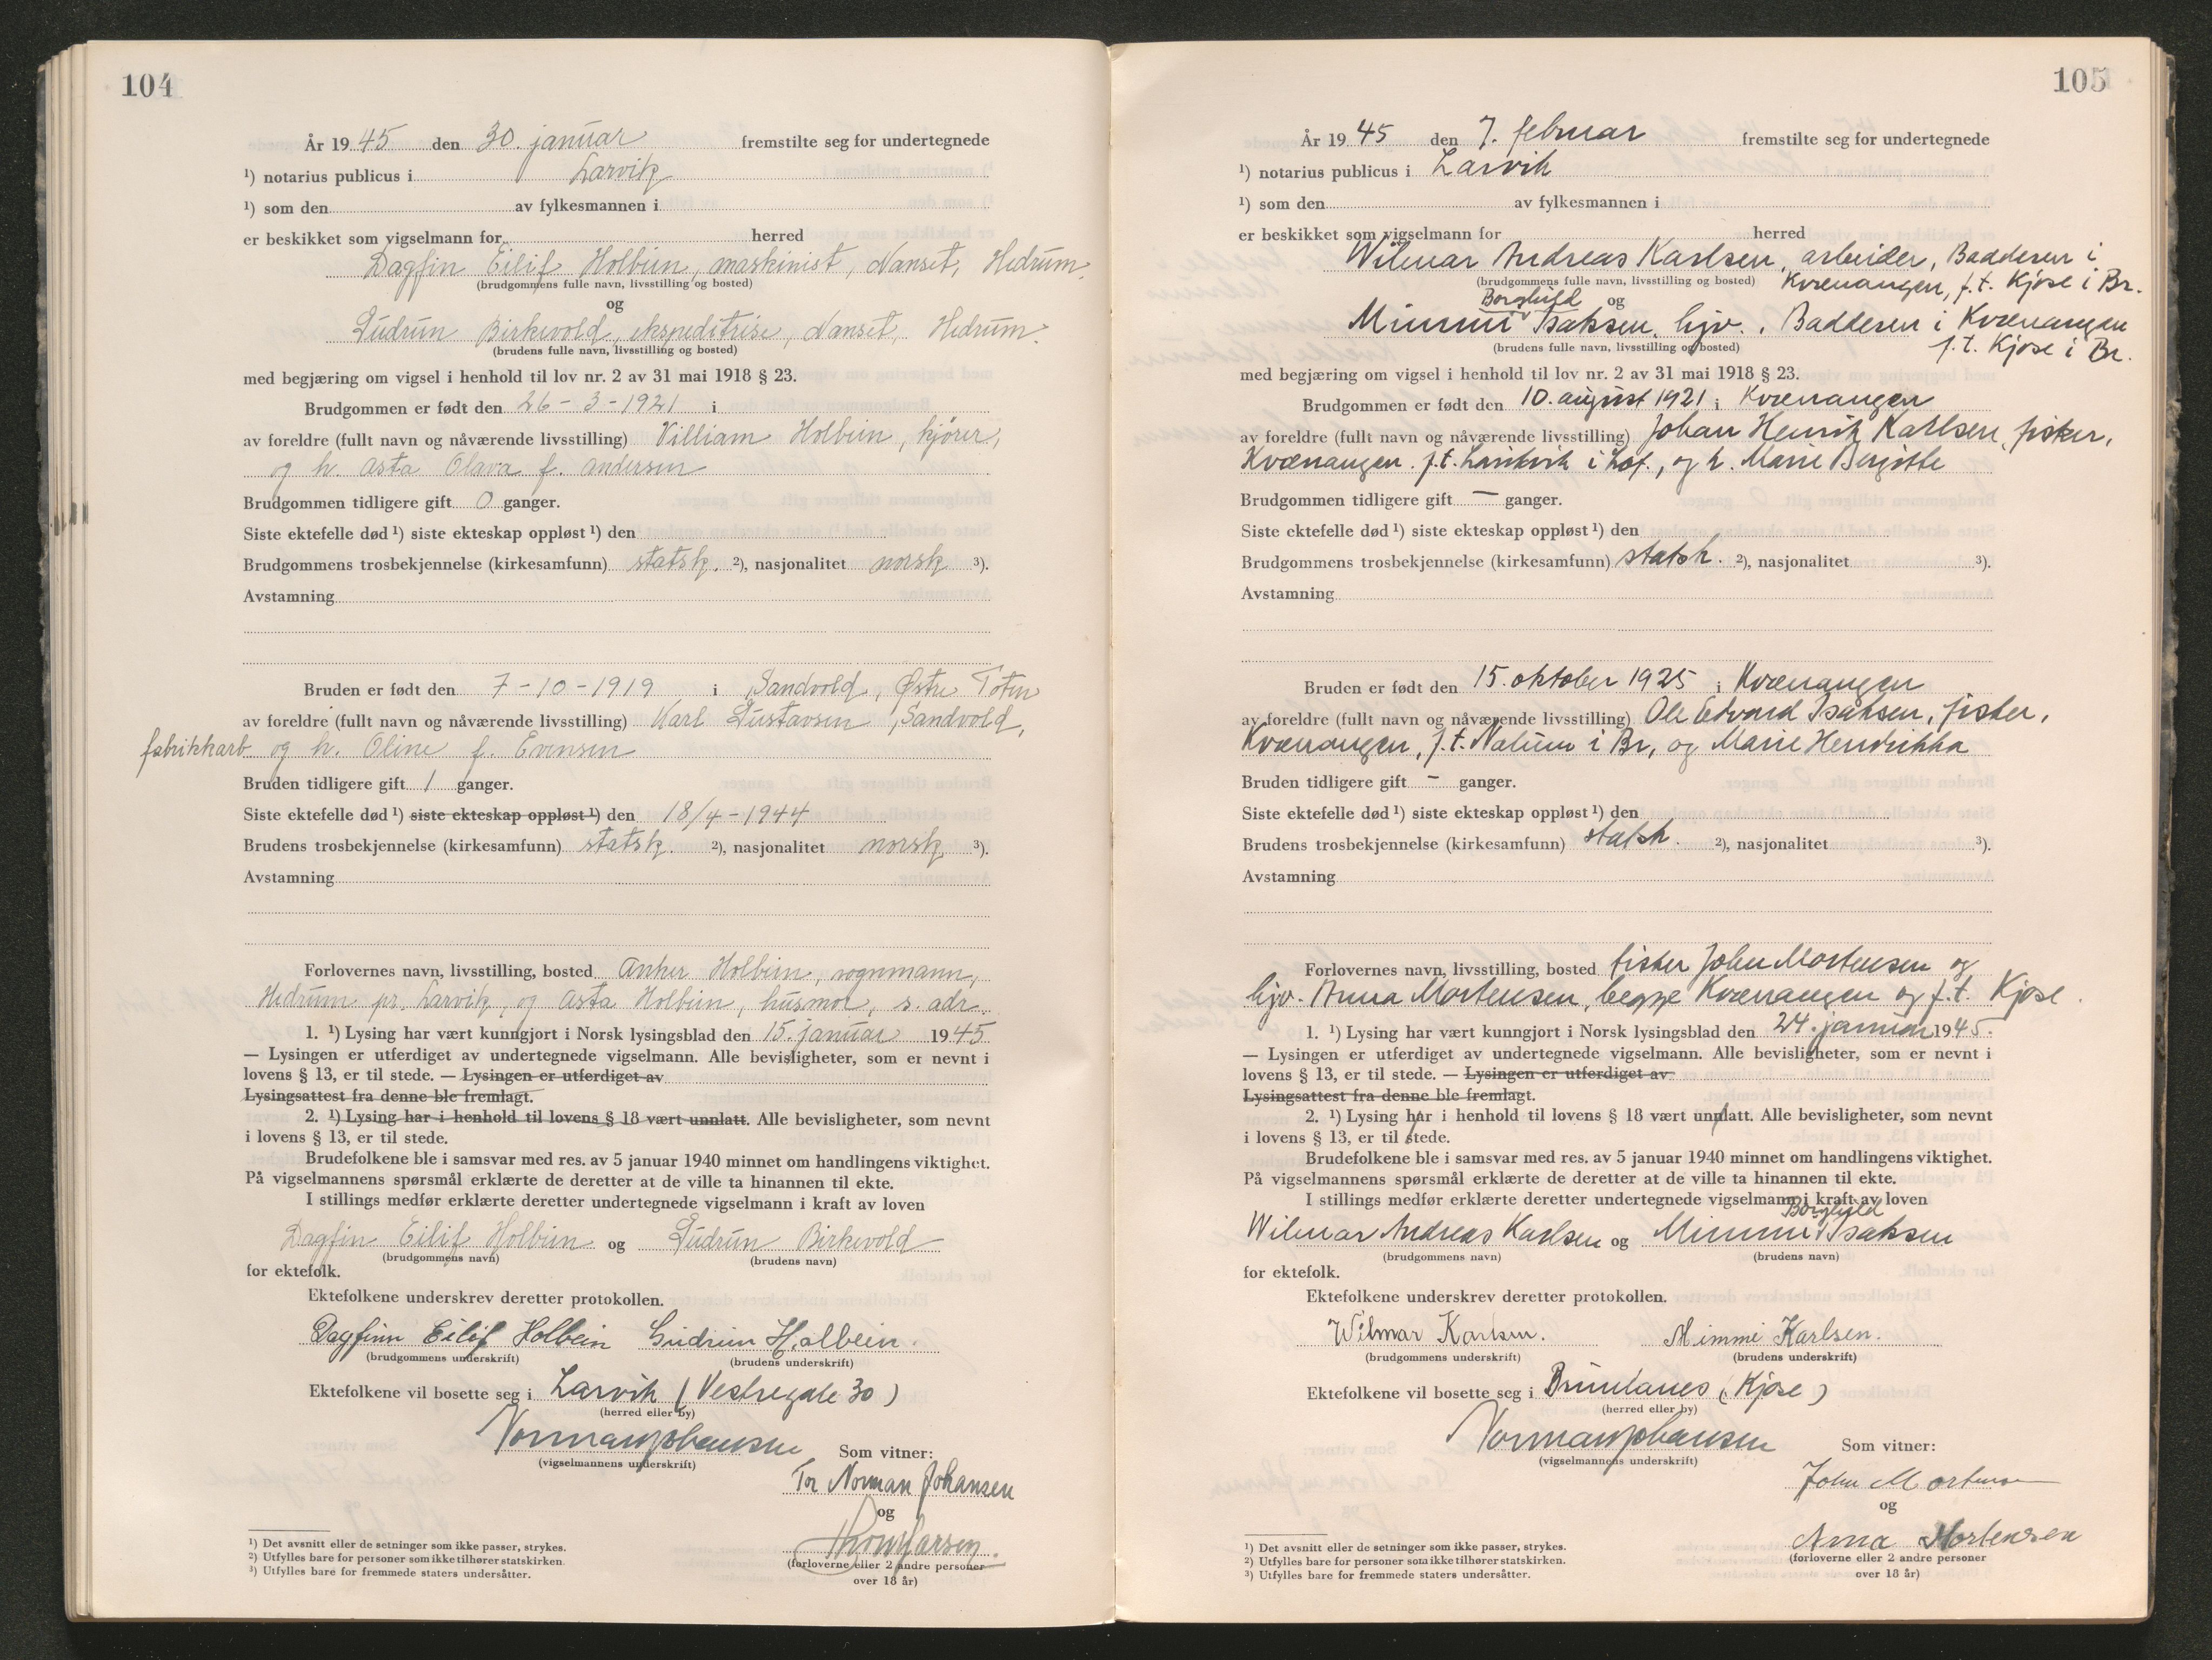 104
År 1945 den 30. januar fremstilte seg for undertegnede
¹) notarius publicus i Larvik
¹) som den av fylkesmannen i
er beskikket som vigselmann for herred
Dagfin Eilif Holbein, maskinist, Nanset, Hedrum.
(brudgommens fulle navn, livsstilling og bosted)
og
Gudrun Birkevold, ekspeditrise, Nanset, Hedrum.
(brudens fulle navn, livsstilling og bosted)
med begjæring om vigsel i henhold til lov nr. 2 av 31 mai 1918 § 23.
Brudgommen er født den 26-3-1921 i
av foreldre (fullt navn og nåværende livsstilling) Villiam Holbein, kjører,
og h. Asta Olava f. Andersen
Brudgommen tidligere gift 0 ganger.
Siste ektefelle død ¹) siste ekteskap oppløst ¹) den
Brudgommens trosbekjennelse (kirkesamfunn) statsk. ²), nasjonalitet norsk ³).
Avstamning
Bruden er født den 7-10-1919 i Sandvold, Østre Toten
av foreldre (fullt navn og nåværende livsstilling) Karl Gustavsen, Sandvold,
fabrikkarb og h. Oline f. Evensen
Bruden tidligere gift 1 ganger.
Siste ektefelle død ¹) siste ekteskap oppløst ¹) den 18/4-1944
Brudens trosbekjennelse (kirkesamfunn) statsk. ²), nasjonalitet norsk ³).
Avstamning
Forlovernes navn, livsstilling, bosted Anker Holbein, vognmann,
Hedrum pr. Larvik, og Asta Holbein, husmor, s. adr.
1. ¹) Lysing har vært kunngjort i Norsk lysingsblad den 15. januar 1945
— Lysingen er utferdiget av undertegnede vigselmann. Alle bevisligheter, som er nevnt i
lovens § 13, er til stede. — Lysingen er utferdiget av
Lysingsattest fra denne ble fremlagt.
2. ¹) Lysing har i henhold til lovens § 18 vært unnlatt. Alle bevisligheter, som nevnt
i lovens § 13, er til stede.
Brudefolkene ble i samsvar med res. av 5 januar 1940 minnet om handlingens viktighet.
På vigselmannens spørsmål erklærte de deretter at de ville ta hinannen til ekte.
I stillings medfør erklærte deretter undertegnede vigselmann i kraft av loven
Dagfin Eilif Holbein og Gudrun Birkevold
(brudgommens navn) (brudens navn)
for ektefolk.
Ektefolkene underskrev deretter protokollen.
Dagfinn Eilif Holbein Gudrun Holbein.
(brudgommens underskrift) (brudens underskrift)
Ektefolkene vil bosette seg i Larvik (Vestregate 30)
(herred eller by)
Norman Johansen Som vitner:
(vigselmannens underskrift)
Tor Norman Johansen
og
(forloverne eller 2 andre personer
over 18 år)
¹) Det avsnitt eller de setninger som ikke passer, strykes.
²) Utfylles bare for personer som ikke tilhører statskirken.
³) Utfylles bare for fremmede staters undersåtter.
105
År 1945 den 7. februar fremstilte seg for undertegnede
¹) notarius publicus i Larvik
¹) som den av fylkesmannen i
er beskikket som vigselmann for herred
Wilmar Andreas Karlsen, arbeider, Badderen i
(brudgommens fulle navn, livsstilling og bosted) Kvænangen, f.t. Kjose i Br.
Borghild og
Mimmi Isaksen, hjv., Badderen i Kvænangen
(brudens fulle navn, livsstilling og bosted) f.t. Kjose i Br.
med begjæring om vigsel i henhold til lov nr. 2 av 31 mai 1918 § 23.
Brudgommen er født den 10. august 1921 i Kvænangen
av foreldre (fullt navn og nåværende livsstilling) Johan Henrik Karlsen, fisker,
Kvænangen. f.t. i Lof., og h. Marie Bergitte
Brudgommen tidligere gift — ganger.
Siste ektefelle død ¹) siste ekteskap oppløst ¹) den
Brudgommens trosbekjennelse (kirkesamfunn) statsk. ²), nasjonalitet ³).
Avstamning
Bruden er født den 15. oktober 1925 i Kvænangen
av foreldre (fullt navn og nåværende livsstilling) Ole Edvard Isaksen, fisker,
Kvænangen, f.t. Nalum i Br, og Marie Hendrikka
Bruden tidligere gift - ganger.
Siste ektefelle død ¹) siste ekteskap oppløst ¹) den
Brudens trosbekjennelse (kirkesamfunn) statsk. ²), nasjonalitet ³).
Avstamning
Forlovernes navn, livsstilling, bosted fisker John Mortensen og
hjv. Anna Mortensen, begge Kvænangen og f.t. Kjose.
1. ¹) Lysing har vært kunngjort i Norsk lysingsblad den 24. januar 1945.
— Lysingen er utferdiget av undertegnede vigselmann. Alle bevisligheter, som er nevnt i
lovens § 13, er til stede. — Lysingen er utferdiget av
Lysingsattest fra denne ble fremlagt.
2. ¹) Lysing har i henhold til lovens § 18 vært unnlatt. Alle bevisligheter, som nevnt
i lovens § 13, er til stede.
Brudefolkene ble i samsvar med res. av 5 januar 1940 minnet om handlingens viktighet.
På vigselmannens spørsmål erklærte de deretter at de ville ta hinannen til ekte.
I stillings medfør erklærte deretter undertegnede vigselmann i kraft av loven
Borghild
Wilmar Andreas Karlsen og Mimmi Isaksen
(brudgommens navn) (brudens navn)
for ektefolk.
Ektefolkene underskrev deretter protokollen.
Wilmar Karlsen. Mimmi Karlsen.
(brudgommens underskrift) (brudens underskrift)
Ektefolkene vil bosette seg i Brunlanes (Kjose)
(herred eller by)
Norman Johansen Som vitner:
(vigselmannens underskrift)
John Mortensen
og
Anna Mortensen
(forloverne eller 2 andre personer
over 18 år)
¹) Det avsnitt eller de setninger som ikke passer, strykes.
²) Utfylles bare for personer som ikke tilhører statskirken.
³) Utfylles bare for fremmede staters undersåtter.